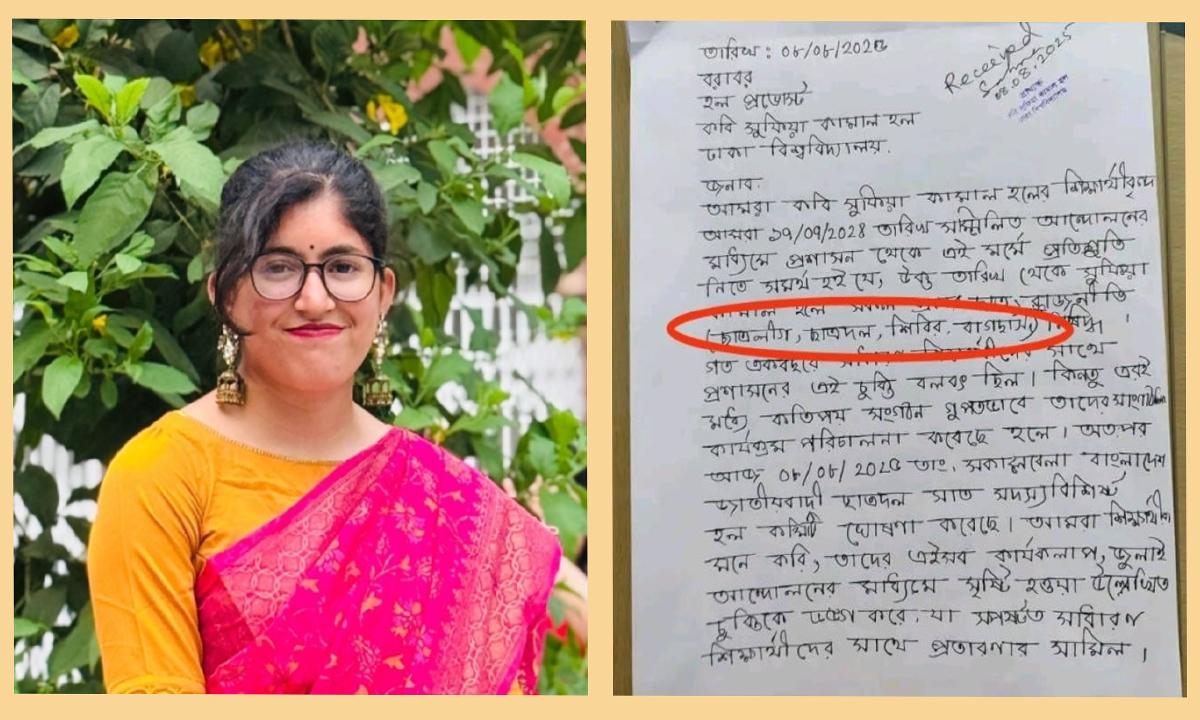 তারিখ : ০৮/০৮/২০২৫
Received
08.08.2025
বরাবর
হল প্রভোস্ট
কবি সুফিয়া কামাল হল
ঢাকা বিশ্ববিদ্যালয়.
জনাব.
আমরা কবি সুফিয়া কামাল হলের শিক্ষার্থীবৃন্দ
আমরা ১৭/০৭/২০২৪ তারিখ সম্মিলিত আন্দোলনের
মাধ্যমে প্রশাসন থেকে এই মর্মে প্রতিশ্রুতি
নিতে সমর্থ হই যে, উক্ত তারিখ থেকে সুফিয়া
কামাল হলে সকল রাজনীতি
(ছাত্রলীগ, ছাত্রদল, শিবির, বাগছাস) নিষিদ্ধ।
গত একবছরে সাধারণ শিক্ষার্থীদের সাথে
প্রশাসনের এই চুক্তি বলবৎ ছিল। কিন্তু এরই
মধ্যে কতিপয় সংগঠন গুপ্তভাবে তাদের সাংগঠনিক
কার্যক্রম পরিচালনা করেছে হলে। অতঃপর
আজ ০৮/০৮/২০২৫ তাং, সকালবেলা বাংলাদেশ
জাতীয়বাদী ছাত্রদল সাত সদস্যবিশিষ্ট
হল কমিটি ঘোষণা করেছে। আমরা শিক্ষার্থীরা
মনে করি, তাদের এইসব কার্যকলাপ, জুলাই
আন্দোলনের মাধ্যমে সৃষ্টি হওয়া উল্লেখিত
চুক্তিকে ভঙ্গ করে, যা স্পষ্টত সাধারণ
শিক্ষার্থীদের সাথে প্রতারণার সামিল।